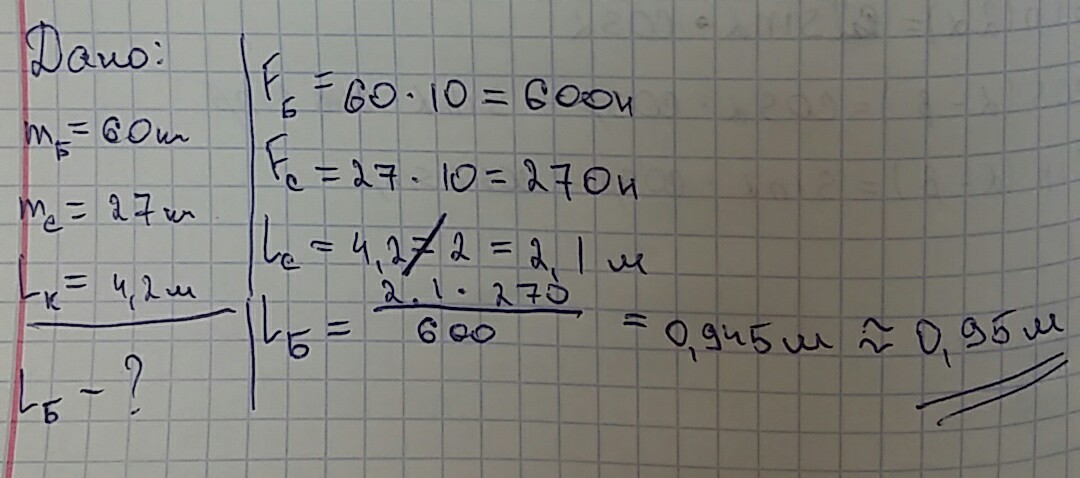 Дано:
m_Б = 60 кг
m_с = 27 кг
L_к = 4,2 м
L_Б - ?
F_Б = 60 · 10 = 600 н
F_с = 27 · 10 = 270 н
L_с = 4,2 / 2 = 2,1 м
L_Б = (2.1 · 270) / 600 = 0,945 м ≈ 0,95 м